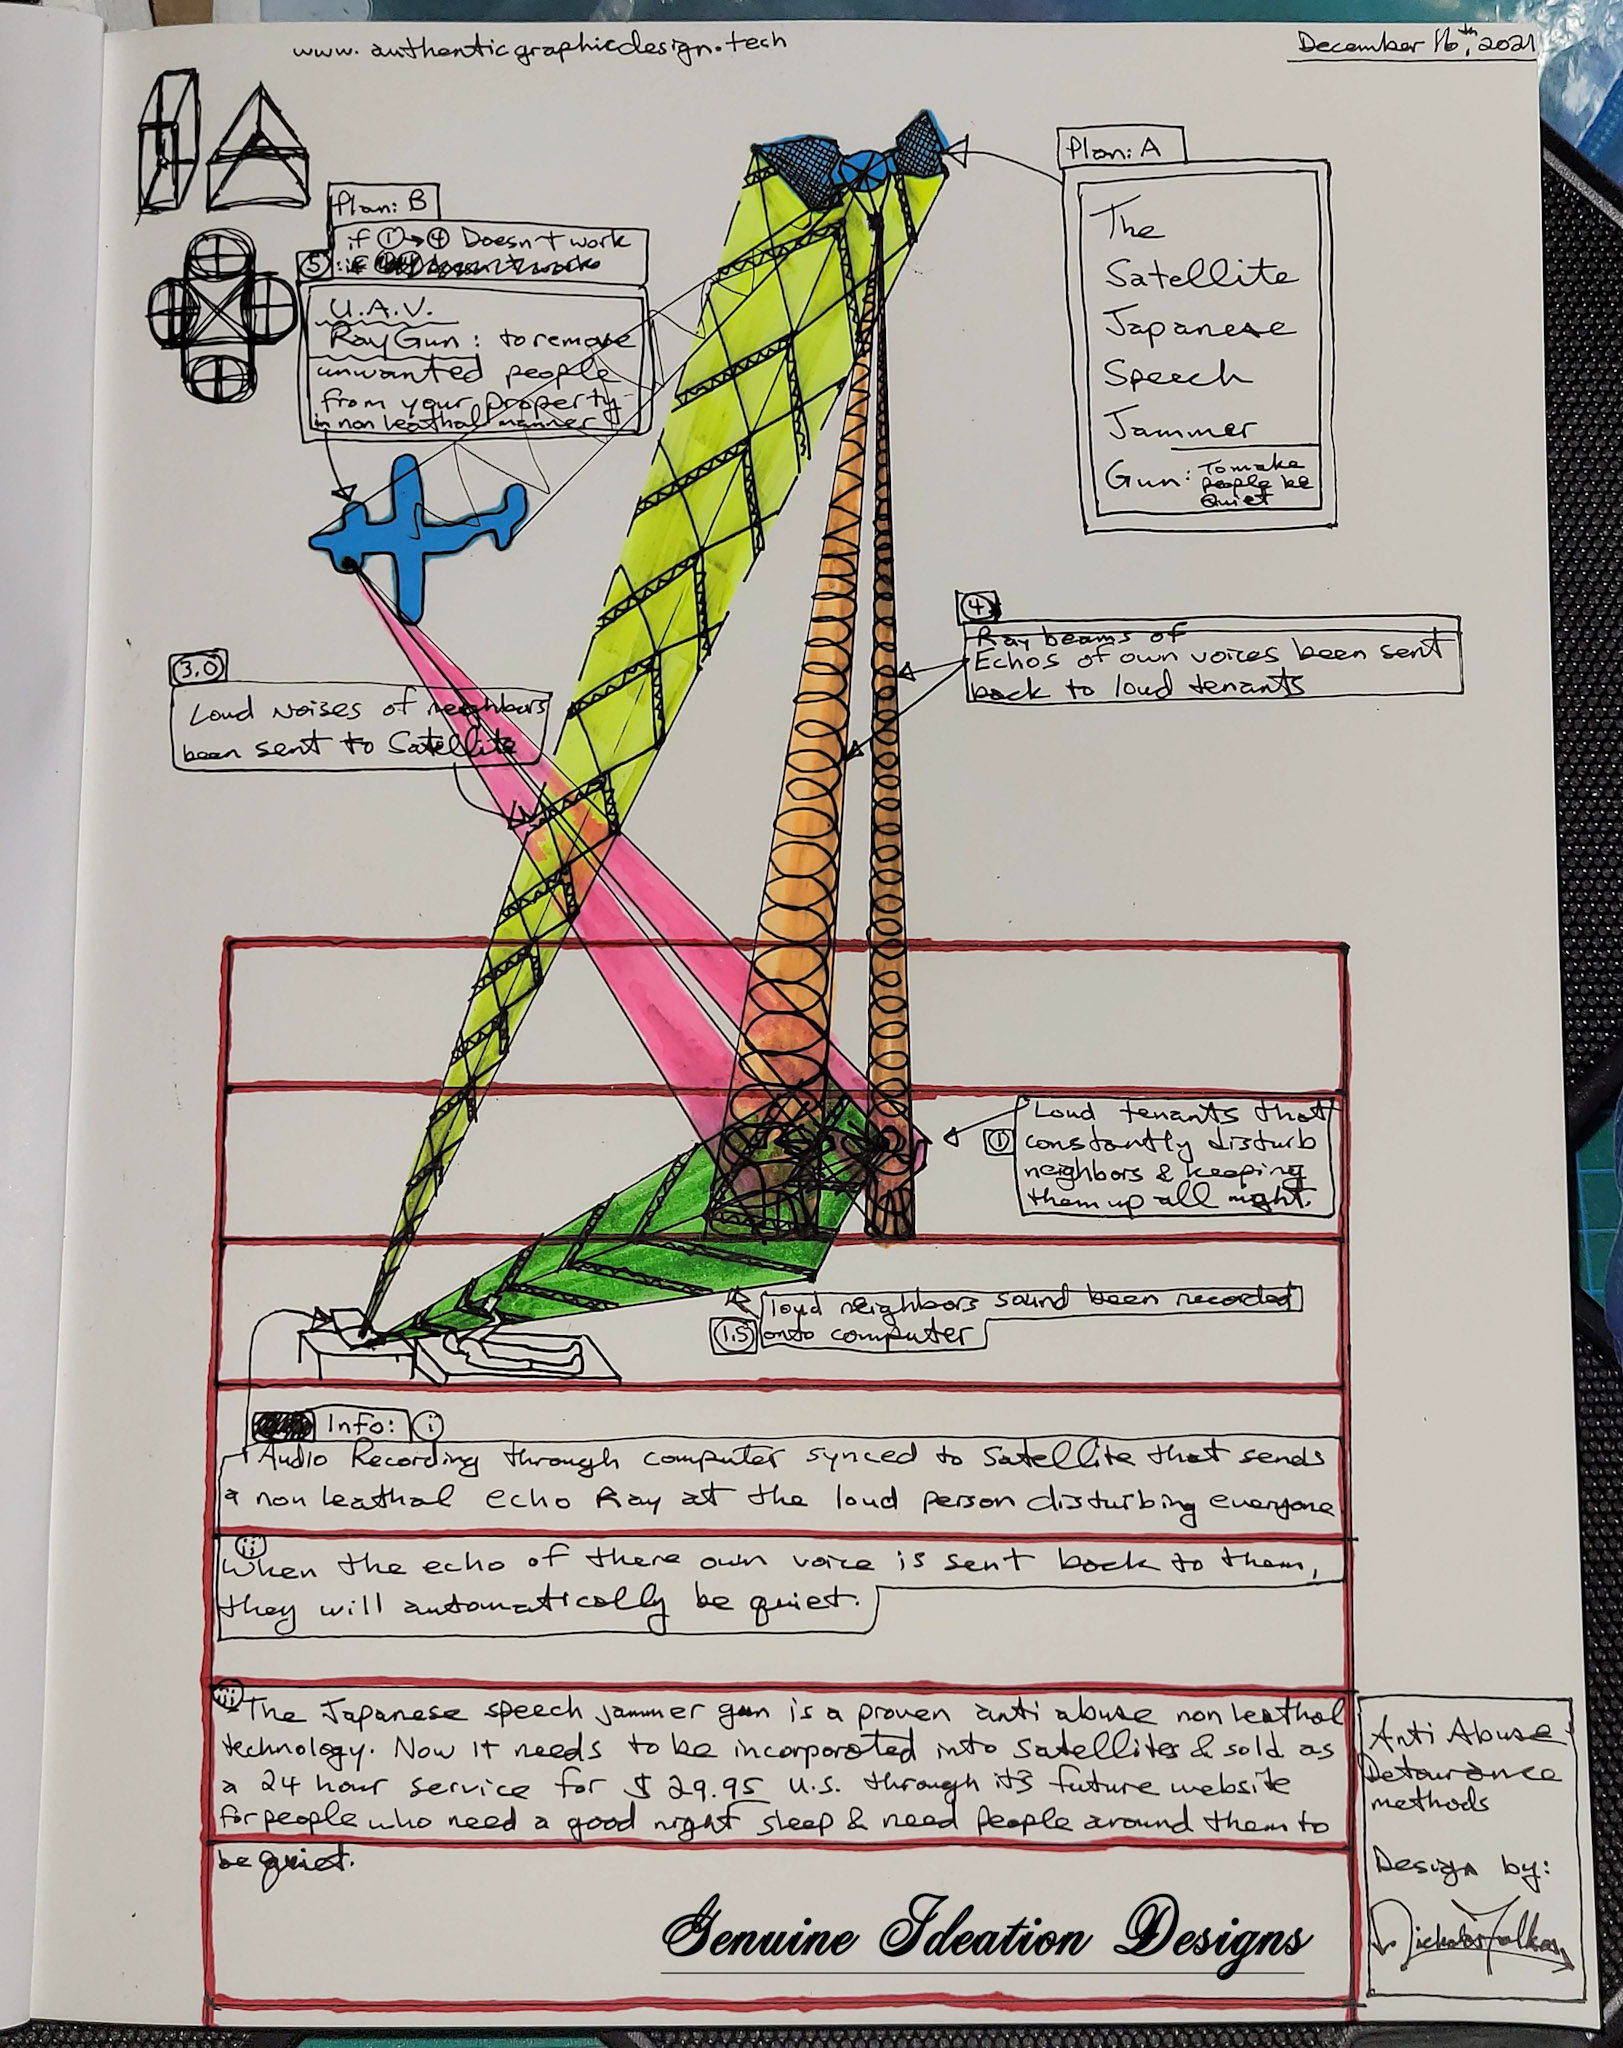 www.authenticgraphicdesign.tech
December 16th, 2021
Plan: A
The
Satellite
Japanese
Speech
Jammer
Gun: To make
people be
Quiet
Plan: B
if ① → ④ Doesn't work
⑤
U.A.V.
Ray Gun: to remove
unwanted people
from your property
in non leathal manner
④
Ray beams of
Echos of own voices been sent
back to loud tenants
3.0
Loud Noises of neighbors
been sent to Satellite
①
Loud tenants that
constantly disturb
neighbors & keeping
them up all night.
1.5
loud neighbors sound been recorded
onto computer
Info: i
Audio Recording through computer synced to Satellite that sends
a non leathal echo Ray at the loud person disturbing everyone
ii
When the echo of there own voice is sent back to them,
they will automatically be quiet.
iii
The Japanese speech jammer gun is a proven anti abuse non leathal
technology. Now it needs to be incorporated into Satellites & sold as
a 24 hour service for $29.95 U.S. through it's future website
for people who need a good night sleep & need people around them to
be quiet.
Anti Abuse
Detourance
methods
Design by:
Genuine Ideation Designs